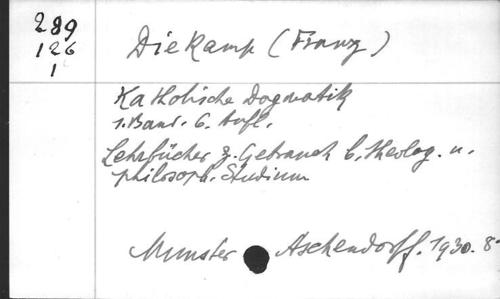 289
126
1
Diekamp (Franz)
Katholische Dogmatik
1. Band. 6. Aufl.
Lehrbücher z. Gebrauch b. theolog. u.
philosoph. Studium
Münster Aschendorff. 1930. 8°